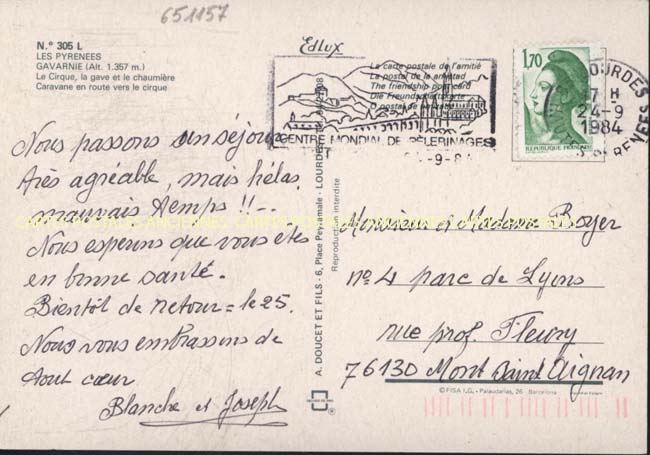 651157
N.° 305 L
LES PYRENEES
GAVARNIE (Alt. 1.357 m.)
Le Cirque, la gave et le chaumière
Caravane en route vers le cirque
Edlux
La carte postale de l'amitié
La postal de la amistad
The friendship post card
Die Freundschaftskarte
CENTRE MONDIAL DE PÈLERINAGES
1,70
REPUBLIQUE FRANÇAISE
LOURDES
17 H
24-9
1984
PYRENEES
Nous passons un séjour
très agréable, mais hélas
mauvais temps !!...
Nous esperons que vous êtes
en bonne santé.
Bientôt de retour = le 25.
Nous vous embrassons de
tout cœur
Blanche et Joseph
A. DOUCET ET FILS - 6, Place Peyramale - LOURDES
Reproduction interdite
Monsieur et Madame Boyer
n° 4 parc de Lyons
rue prof. Fleury
76130 Mont Saint Aignan
© FISA I.G. - Palaudarias, 26 - Barcelona